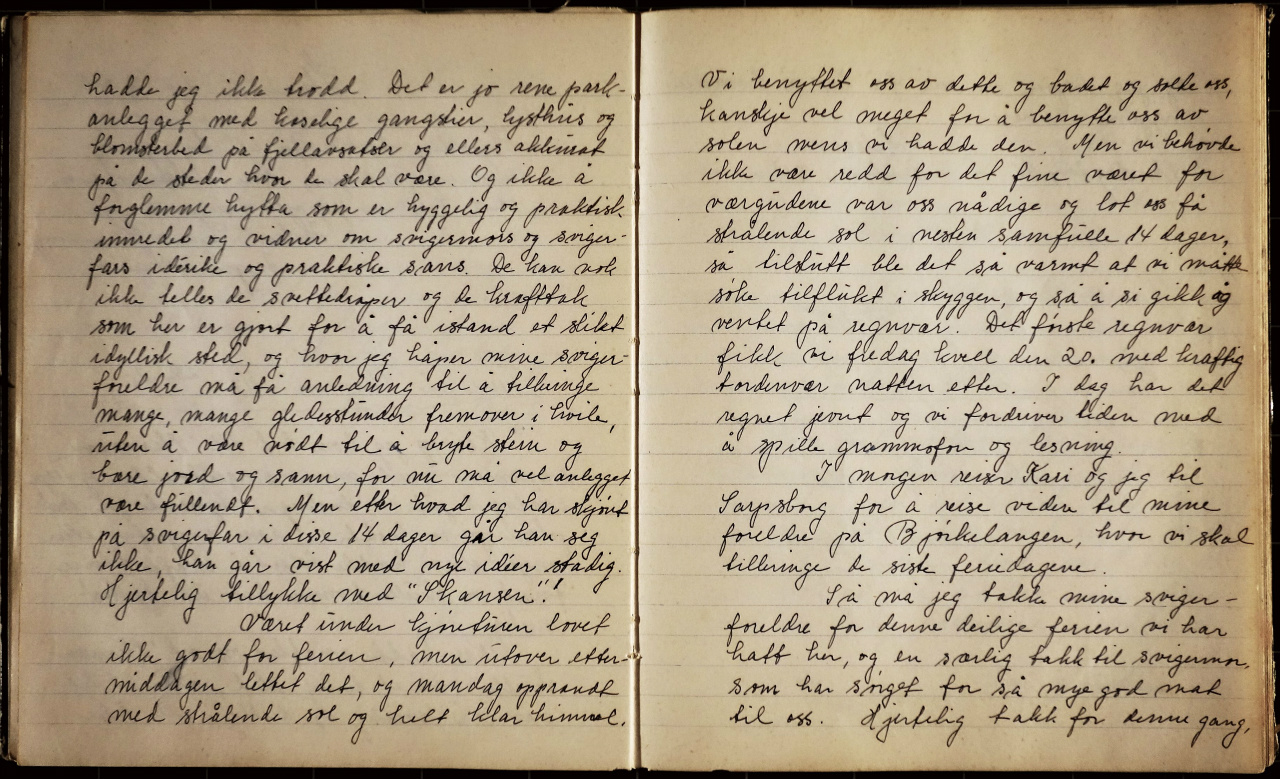 hadde jeg ikke trodd. Det er jo rene park-
anlegget med koselige gangstier, lysthus og
blomsterbed på fjellavsatser og ellers akkurat
på de steder hvor de skal være. Og ikke å
forglemme hytta som er hyggelig og praktisk
innredet og vidner om svigermors og sviger-
fars idérike og praktiske sans. De kan nok
ikke telles de svettedråper og de krafttak
som her er gjort for å få istand et slikt
idyllisk sted, og hvor jeg håper mine sviger-
foreldre må få anledning til å tilbringe
mange, mange gledesstunder fremover i hvile,
uten å være nødt til å bryte stein og
bære jord og sann, for nu må vel anlegget
være fullendt. Men etter hvad jeg har skjønt
på svigerfar i disse 14 dager gir han seg
ikke, han går vist med nye idéer stadig.
Hjertelig tillykke med "Skansen"!
Været under kjøreturen lovet
ikke godt for ferien, men utover etter-
middagen lettet det, og mandag opprandt
med strålende sol og helt klar himmel.
Vi benyttet oss av dette og badet og solte oss,
kanskje vel meget for å benytte oss av
solen mens vi hadde den. Men vi behøvde
ikke være redd for det fine været for
værgudene var oss nådige og lot oss få
strålende sol i nesten samfulle 14 dager,
så tilslutt ble det så varmt at vi måtte
søke tilflukt i skyggen, og så å si gikk og
ventet på regnvær. Det første regnvær
fikk vi fredag kvell den 20. med kraftig
tordenvær natten etter. I dag har det
regnet jevnt og vi fordriver tiden med
å spille grammofon og lesning.
I morgen reiser Kari og jeg til
Sarpsborg for å reise videre til mine
foreldre på Bjørkelangen, hvor vi skal
tilbringe de siste feriedagene.
Så må jeg takke mine sviger-
foreldre for denne deilige ferien vi har
hatt her, og en særlig takk til svigermor,
som har sørget for så mye god mat
til oss. Hjertelig takk for denne gang,